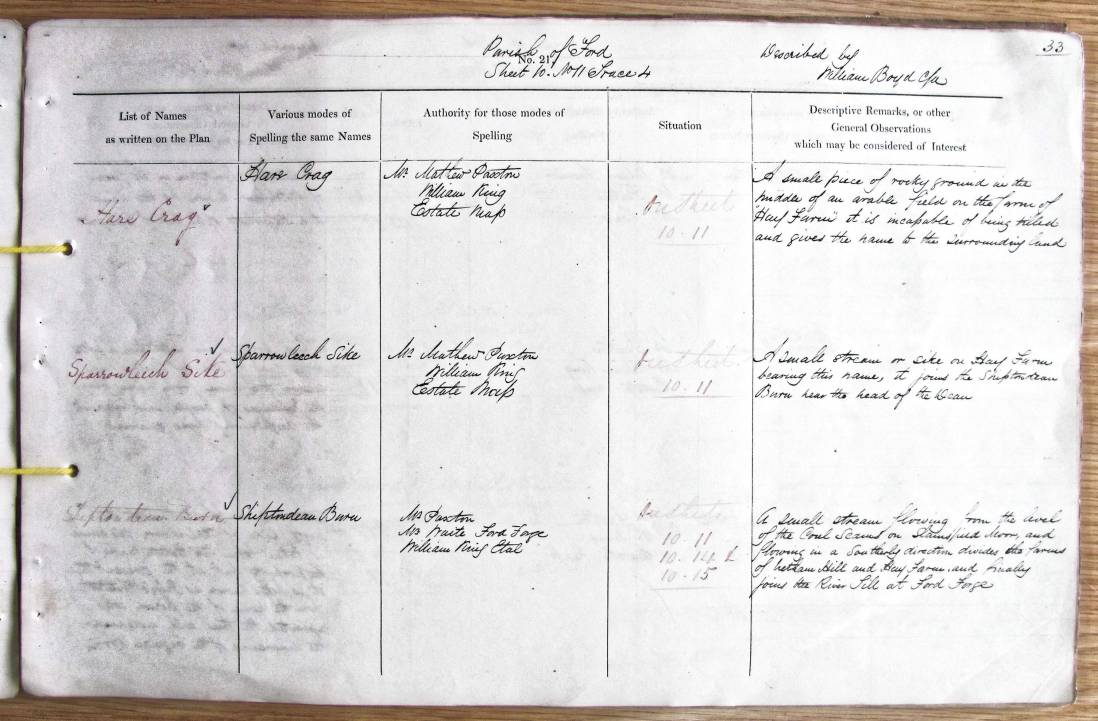 33
Parish of Ford
No. 21
Sheet 10. No 11 Trace 4
Described by
William Boyd c/a
List of Names
as written on the Plan
Various modes of
Spelling the same Names
Authority for those modes of
Spelling
Situation
Descriptive Remarks, or other
General Observations
which may be considered of Interest
Hare Crag
Hare Crag
Mr Mathew Paxton
William King
Estate Map
On sheet
10 . 11
A small piece of rocky ground in the
middle of an arable field on the farm of
"Hay Farm" it is incapable of being tilled
and gives the name to the surrounding land
Sparrowleech Sike
Sparrowleech Sike
Mr Mathew Paxton
William King
Estate Map
On sheet
10 . 11
A small stream or sike on Hay Farm
bearing this name, it joins the Shiptondean
Burn near the head of the Dean
Shiptondean Burn
Shiptondean Burn
Mr Paxton
Mr Waite Ford Forge
William King Etal
On sheets
10 . 11
10 . 14 &
10 . 15
A small stream flowing from the level
of the Coal Seams on Slainsfield Moor, and
flowing in a Southerly direction divides the farms
of Letham Hill and Hay Farm, and finally
joins the River Till at Ford Forge